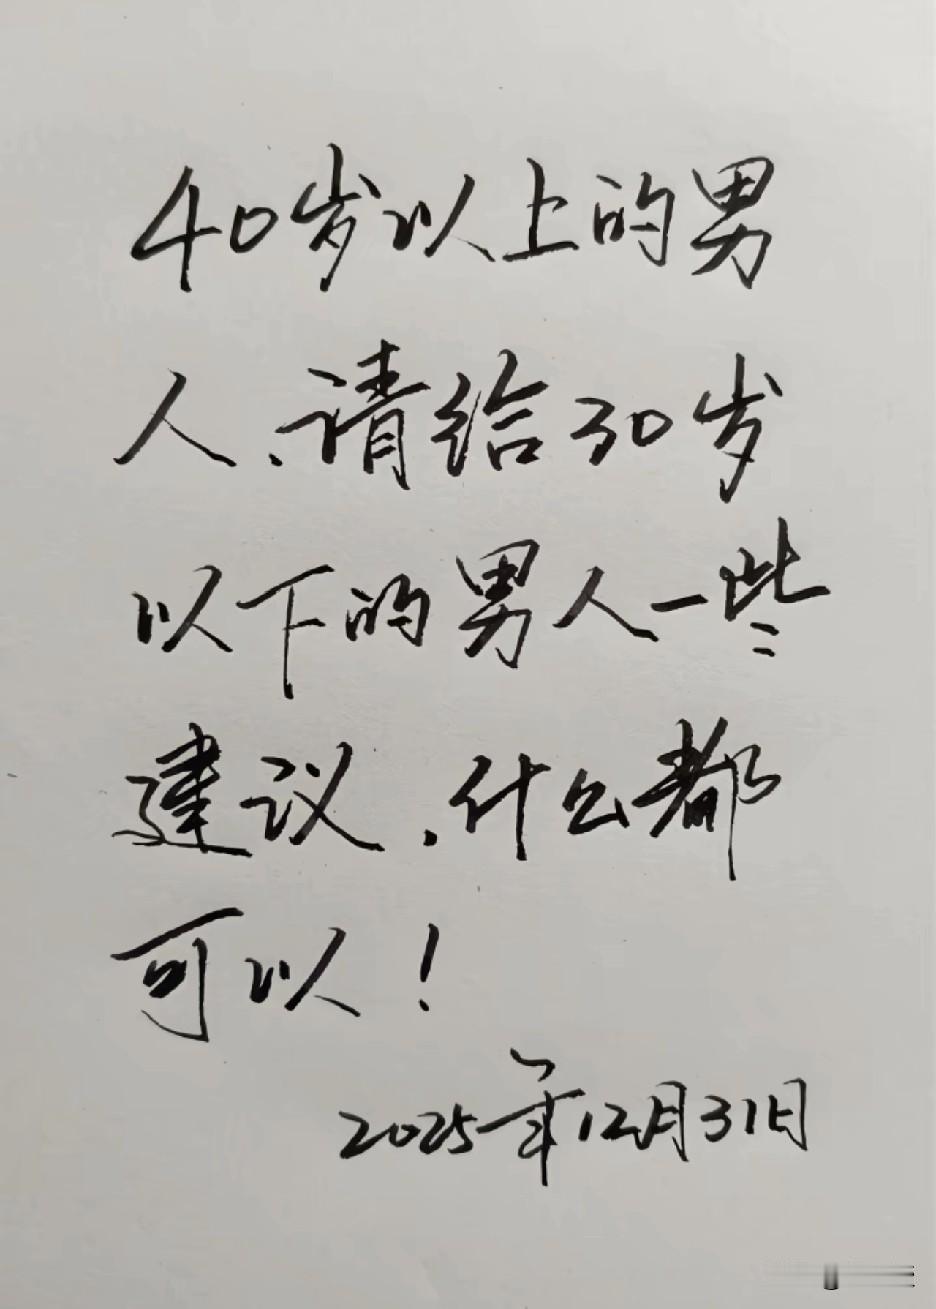 40岁以上的男
人、请给30岁
以下的男人一些
建议、什么都
可以！
2025年12月31日